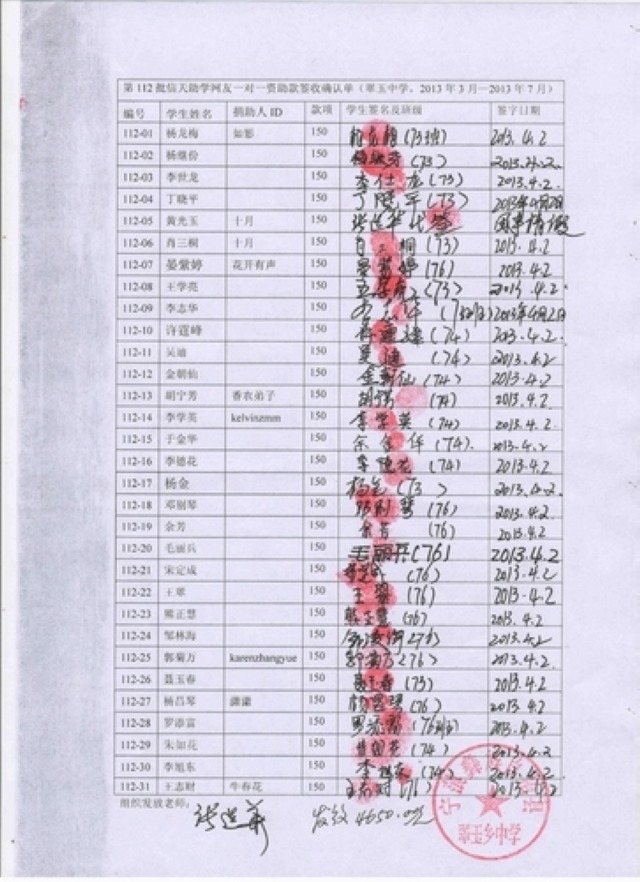 第112批信天助学网友一对一资助款签收确认单（翠玉中学，2013年3月—2013年7月）
编号 学生姓名 捐助人ID 款项 学生签名及班级 签字日期
112-01 杨龙梅 如影 150 (73班) 2013.4.2
112-02 杨继份 150 (73) 2013.4.2.
112-03 李世龙 150 李仕龙(73) 2013.4.2.
112-04 丁晓平 150 丁晓平(73) 2013年4月2日
112-05 黄光玉 十月 150 张选华代签 因事请假
112-06 肖三桐 十月 150 肖三桐(73) 2013.4.2
112-07 晏紫婷 花开有声 150 晏紫婷(76) 2013.4.2
112-08 王学亮 150 (73) 2013.4.2.
112-09 李志华 150 2013年4月2日
112-10 许莲峰 150 (74) 2013.4.2
112-11 吴迪 150 吴迪(74) 2013.4.2
112-12 金朝仙 150 金朝仙(74) 2013.4.2
112-13 胡宁芳 香农弟子 150 (74) 2013.4.2
112-14 李学英 kelvinzmm 150 李学英(74) 2013.4.2.
112-15 于金华 150 余金华(74). 2013.4.2
112-16 李德花 150 李德花(74) 2013.4.2
112-17 杨金 150 杨金(73) 2013.4.2.
112-18 邓别琴 150 邓别琴(76) 2013.4.2
112-19 余芳 150 余芳(76) 2013.4.2
112-20 毛丽兵 150 毛丽兵(76) 2013.4.2
112-21 宋定成 150 (76) 2013.4.2
112-22 王翠 150 王翠(76) 2013.4.2
112-23 熊正慧 150 熊正慧(76) 2013.4.2
112-24 邹林海 150 2013.4.2
112-25 郭菊万 karenzhangyue 150 郭菊万(76) 2013.4.2
112-26 聂玉春 150 聂玉春(73) 2013.4.2
112-27 杨昌琴 潇潇 150 杨昌琴(76) 2013.4.2
112-28 罗添富 150 罗添富(76班) 2013.4.2
112-29 朱如花 150 朱如花(74) 2013.4.2
112-30 李旭东 150 李旭东(74) 2013.4.2
112-31 王志财 牛春花 150 王志财(76) 2013.4.2
组织发放老师：
张选华 发放4650.0元
翠玉乡中学